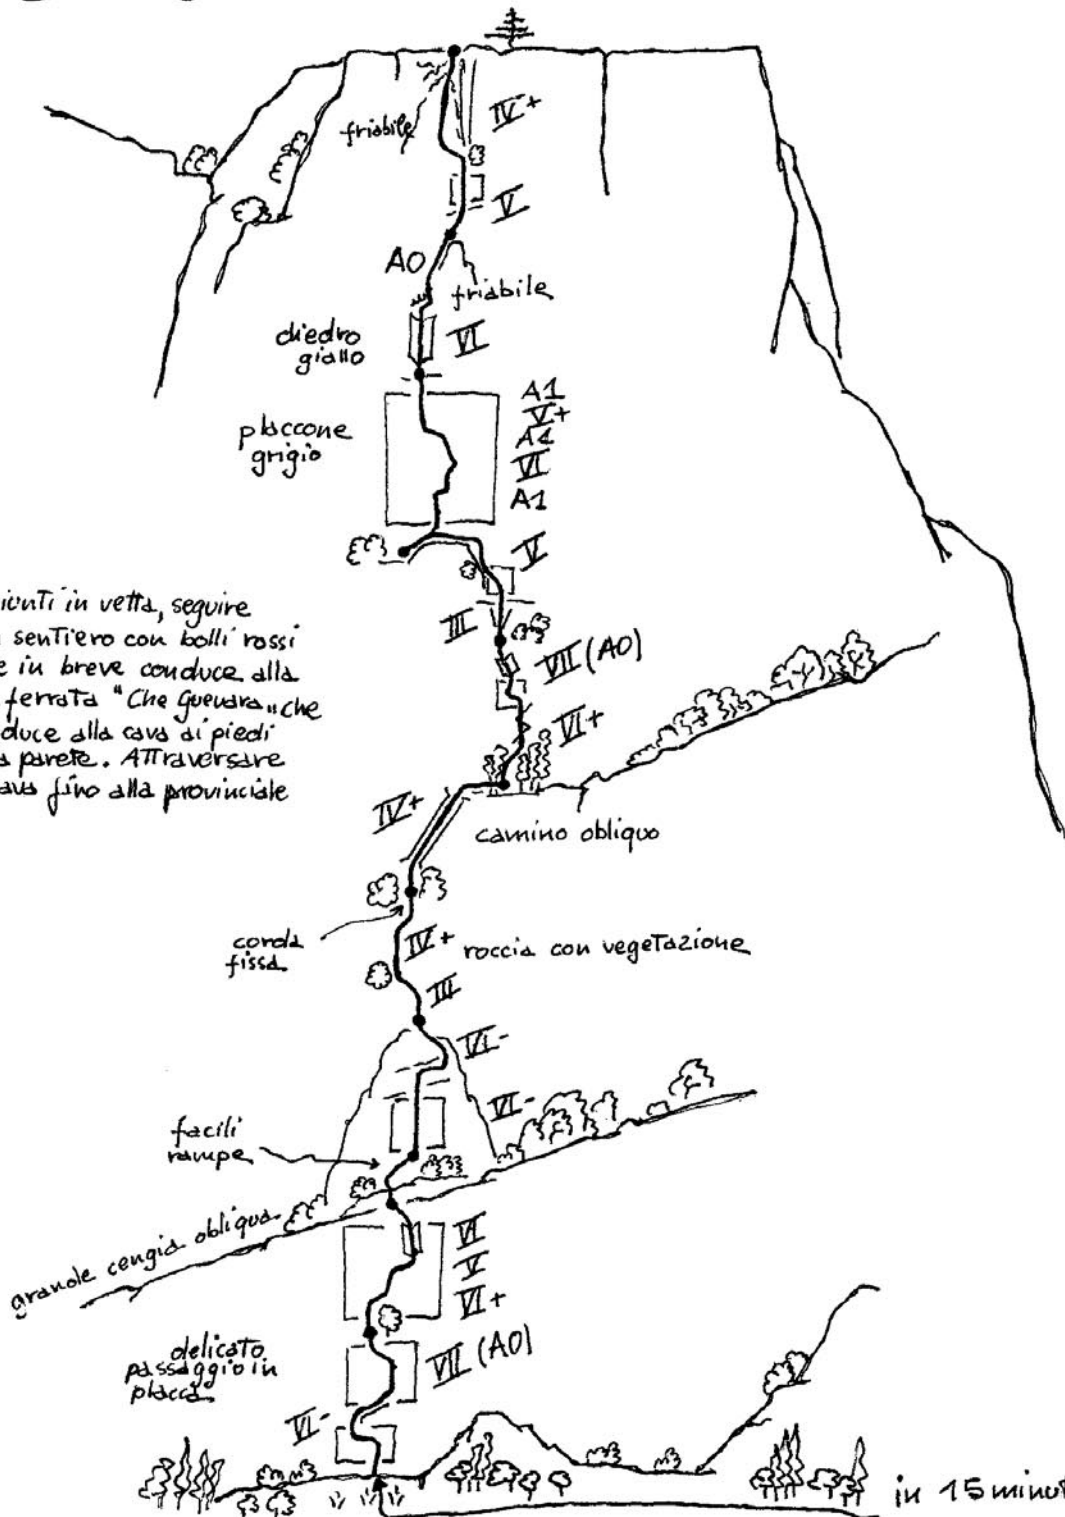 friabile
IV+
V
A0
friabile
diedro
giallo
VI
placcone
grigio
A1
V+
A1
VI
A1
V
in vetta, seguire
sentiero con bolli rossi
in breve conduce alla
ferrata "Che Guevara" che
duce alla cava ai piedi
parete. Attraversare
fino alla provinciale
III
VII (A0)
VI+
IV+
camino obliquo
corda
fissa
IV+
roccia con vegetazione
III
VI-
VI-
facili
rampe
grande cengia obliqua
VI
V
VI+
delicato
passaggio in
placca
VII (A0)
VI-
in 15 minut